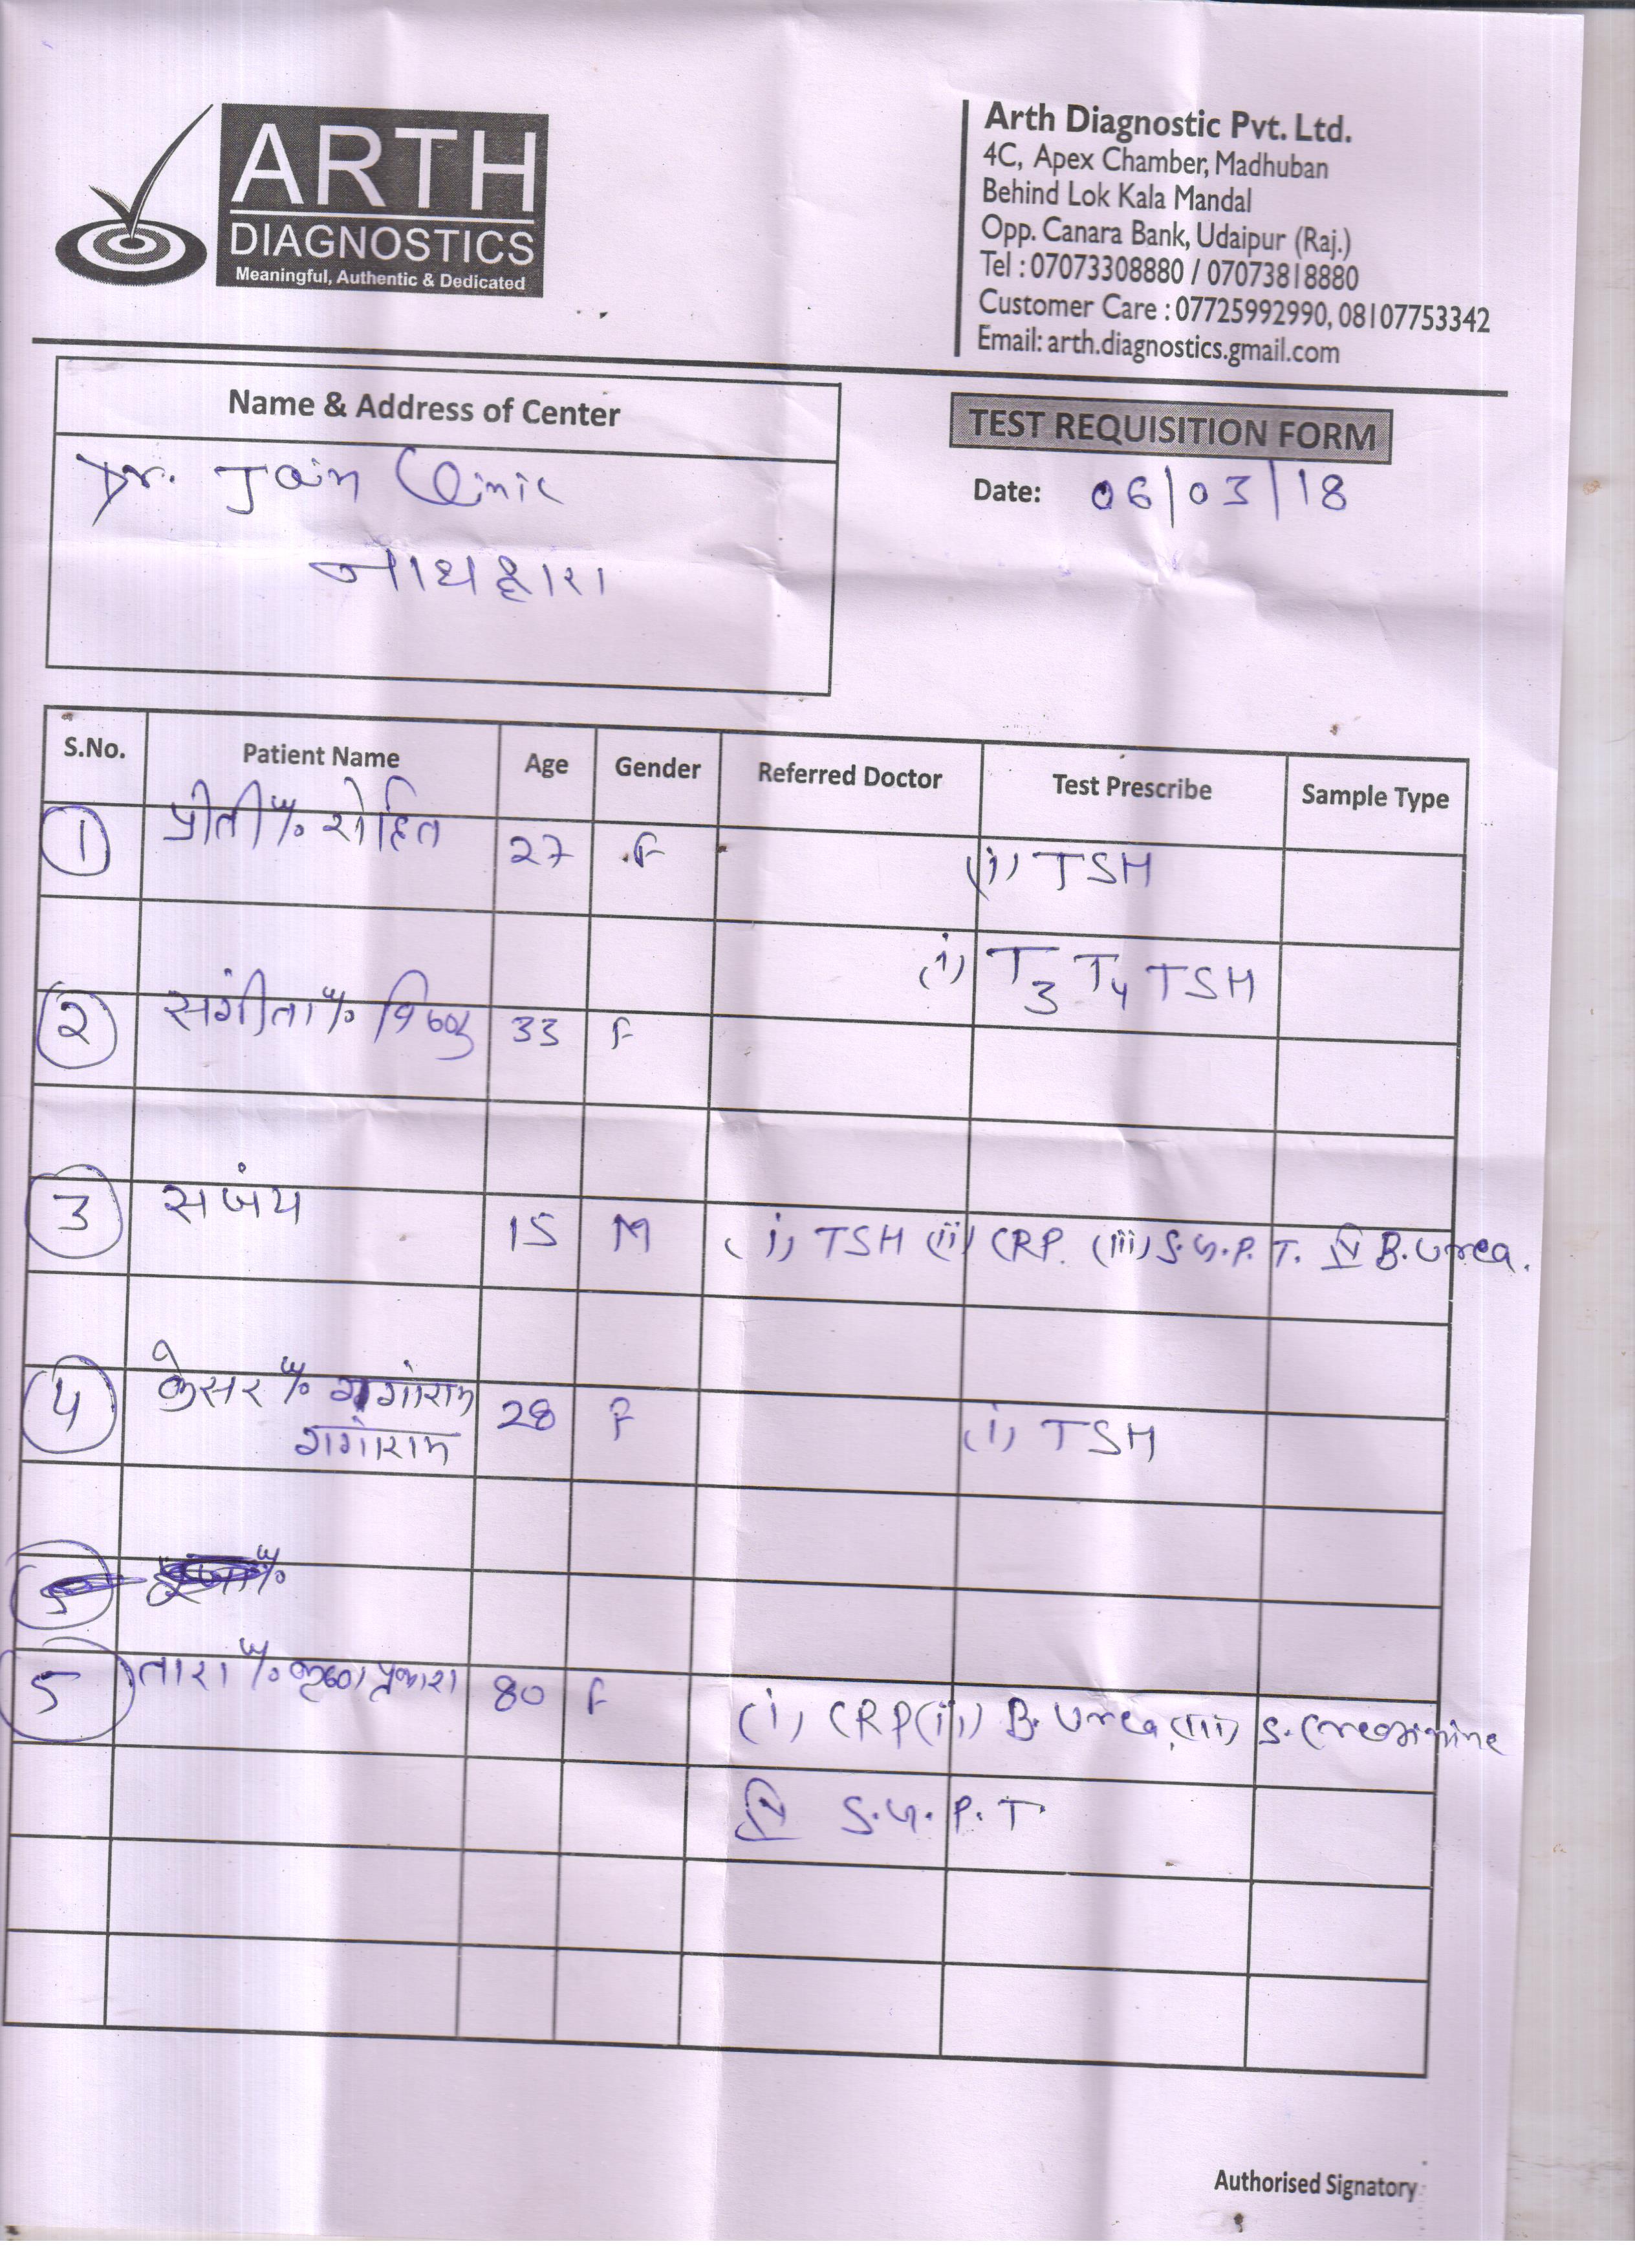 ARTH
DIAGNOSTICS
Meaningful, Authentic & Dedicated
Arth Diagnostic Pvt. Ltd.
4C, Apex Chamber, Madhuban
Behind Lok Kala Mandal
Opp. Canara Bank, Udaipur (Raj.)
Tel : 07073308880 / 07073818880
Customer Care : 07725992990, 08107753342
Email: arth.diagnostics.gmail.com
Name & Address of Center
Dr. Jain Clinic
नाथद्वारा
TEST REQUISITION FORM
Date: 06/03/18
S.No. Patient Name Age Gender Referred Doctor Test Prescribe Sample Type
1 प्रीती w/o रोहित 27 F (i) TSH
(i) T3 T4 TSH
2 संगीता w/o विष्णु 33 F
3 सजंय 15 M (i) TSH (ii) CRP. (iii) S.G.P.T. IV B.Urea.
4 केसर w/o गगांराम 28 F (i) TSH
गगांराम
5 तारा w/o कृष्णा प्रकाश 80 F (i) CRP (ii) B.Urea (iii) S.Creatinine
IV S.G.P.T.
Authorised Signatory